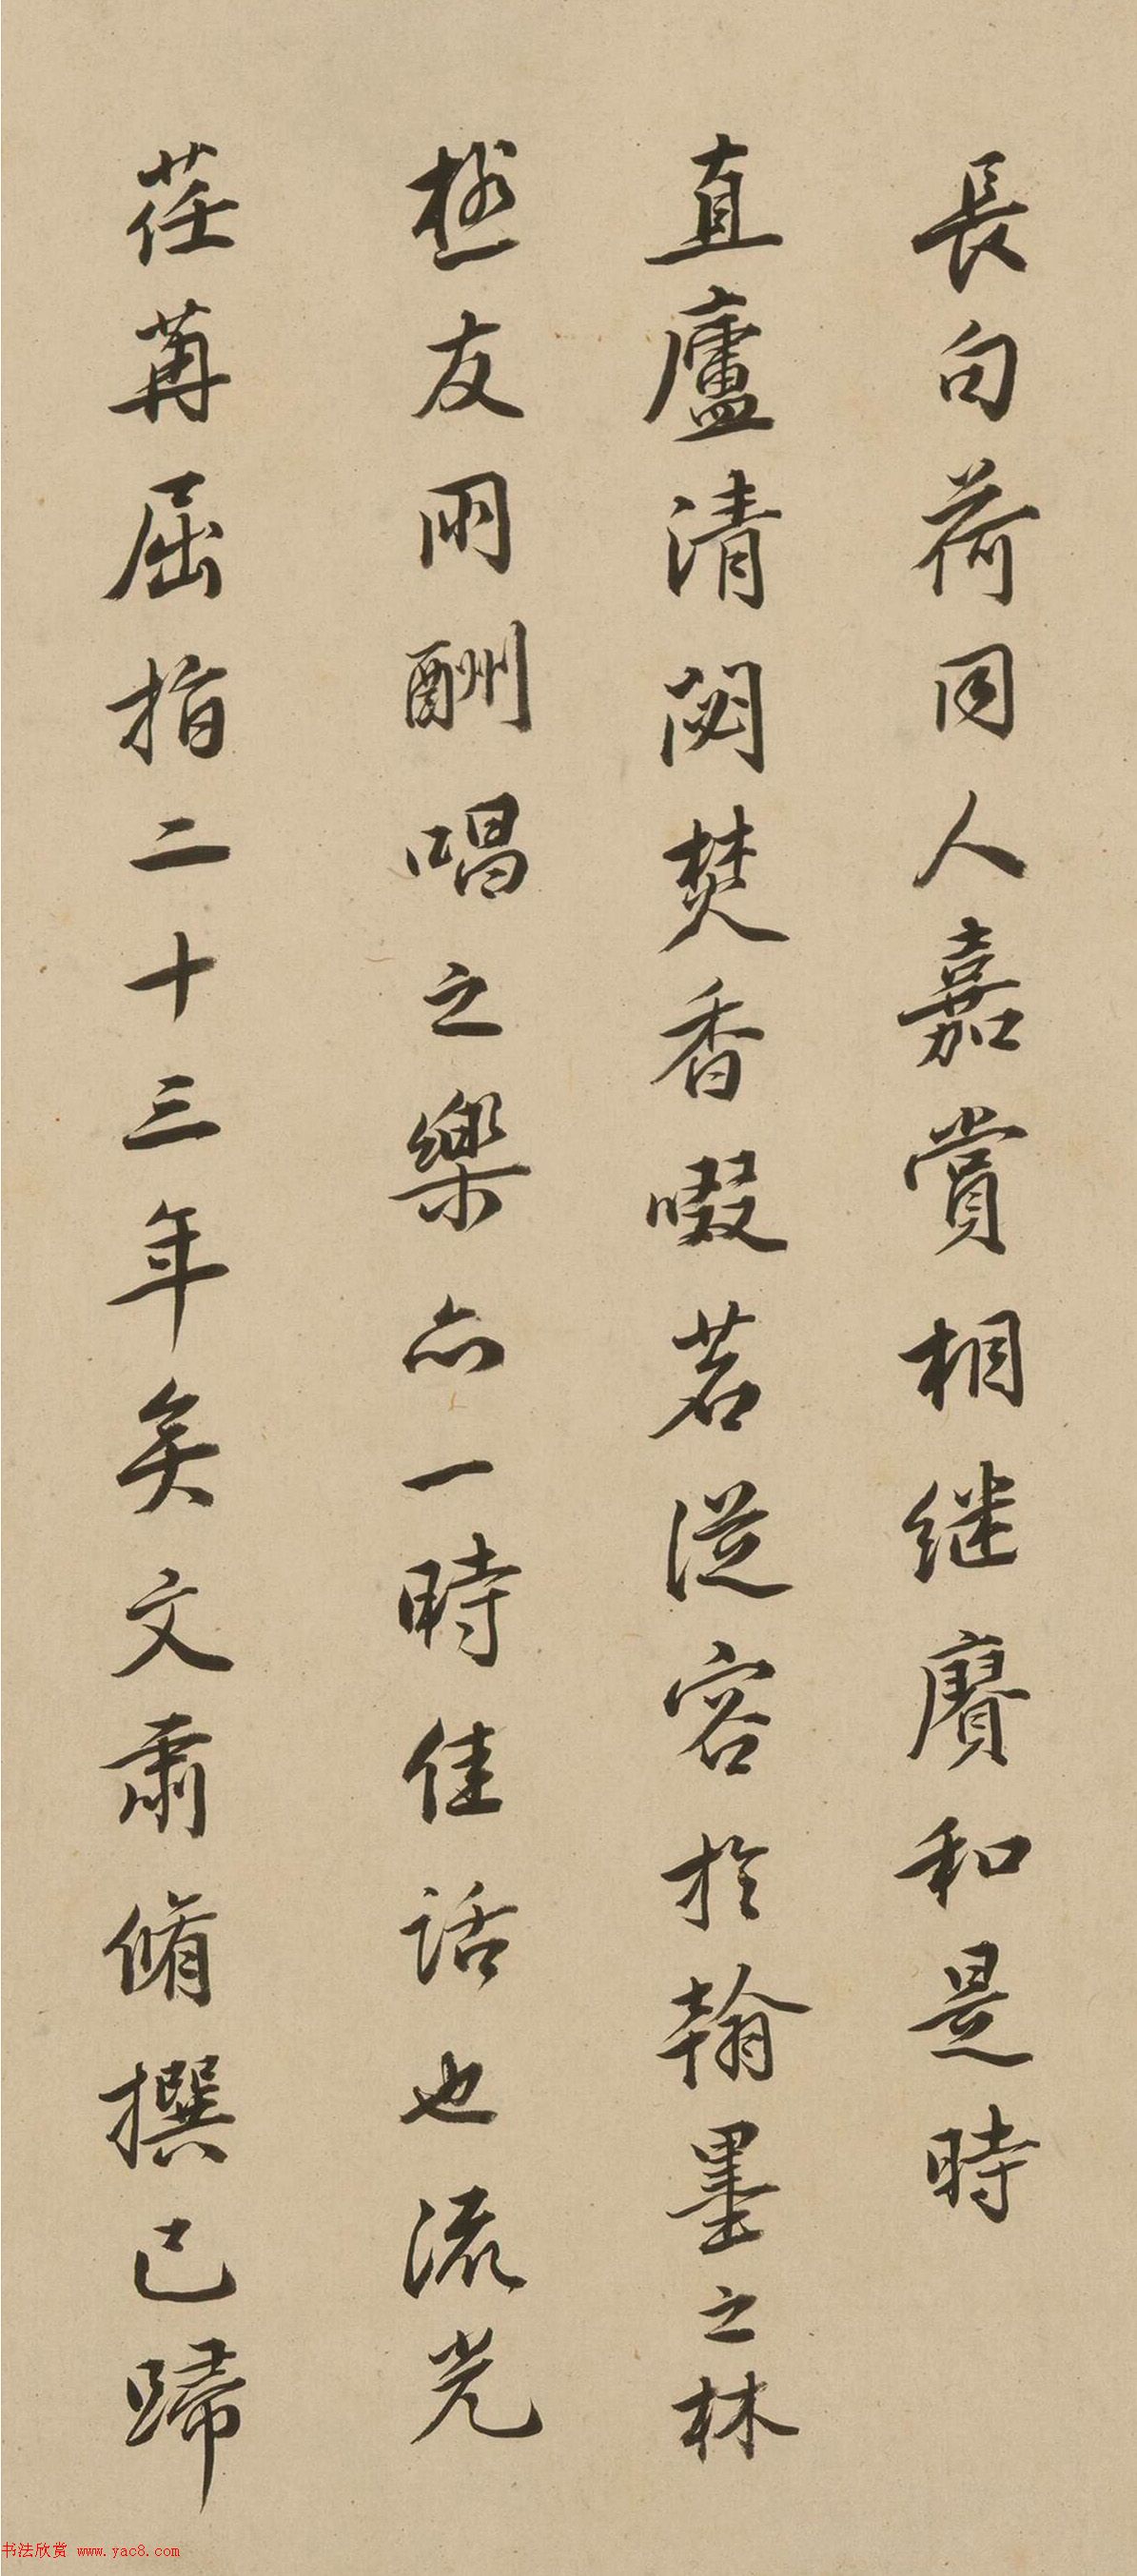 長句荷同人嘉賞相継賡和是時
直廬清閟焚香啜茗從容於翰墨之林
極友朋酬唱之樂亦一時佳話也流光
荏苒屈指二十三年矣文肅脩撰已歸
书法欣赏 www.yac8.com